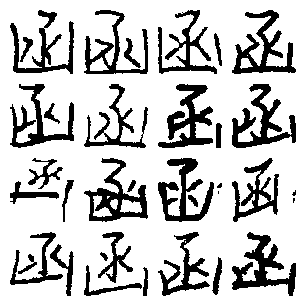 函函函函
函函函函
函函函函
函函函函